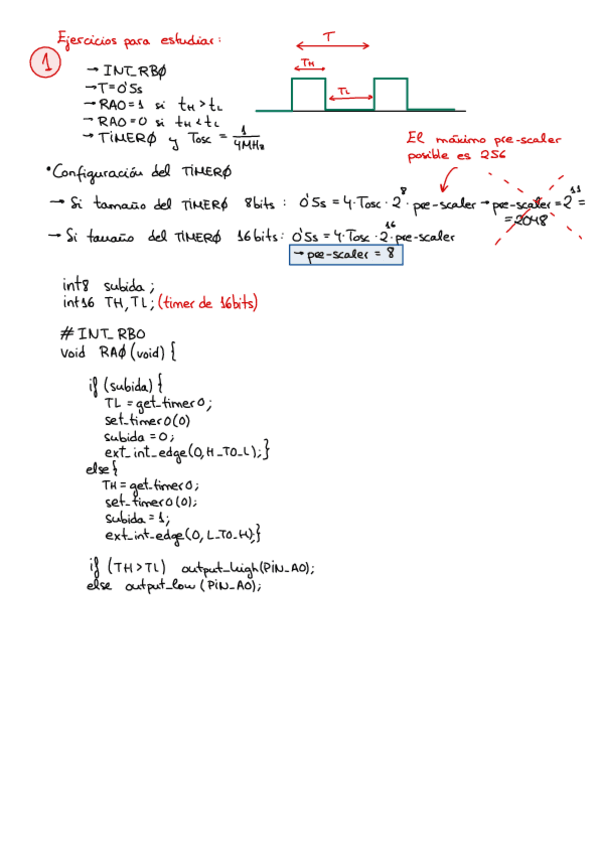 Ejercicios para estudiar:
T
1
→ INT_RBØ
TH
→ T=0'5s
TL
→ RA0=1 si tH > tL
→ RA0=0 si tH < tL
→ TIMERØ y Tosc = 1/4MHz
El máximo pre-scaler
posible es 256
•Configuración del TIMERØ
→ Si tamaño del TIMERØ 8bits: 0'5s = 4·Tosc·2^8·pre-scaler → pre-scaler = 2^11 =
= 2048
→ Si tamaño del TIMERØ 16bits: 0'5s = 4·Tosc·2^16·pre-scaler
→ pre-scaler = 8
int8 subida;
int16 TH,TL; (timer de 16bits)
# INT_RB0
void RAØ(void) {
if (subida) {
TL = get_timer0;
set_timer0(0)
subida = 0;
ext_int_edge(0,H_TO_L);}
else{
TH = get_timer0;
set_timer0(0);
subida = 1;
ext_int_edge(0,L_TO_H);}
if (TH>TL) output_high(PIN_A0);
else output_low (PIN_A0);